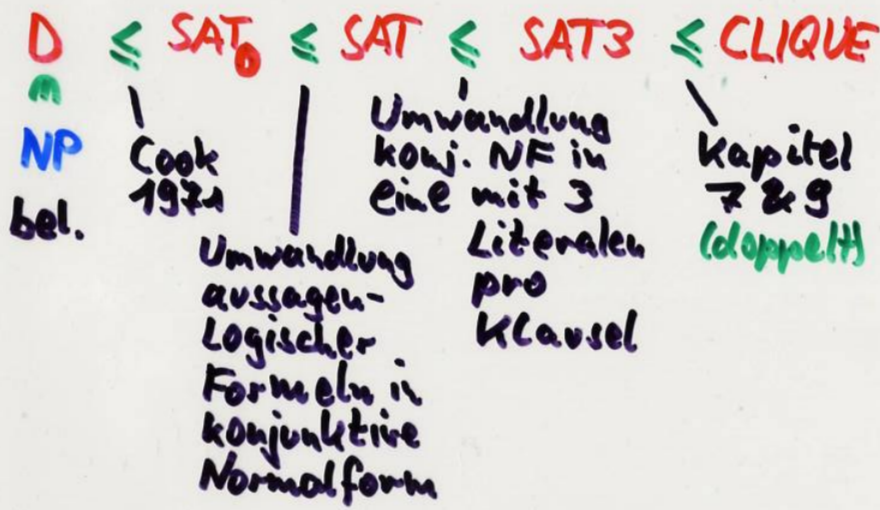 D ≤ SAT₀ ≤ SAT ≤ SAT3 ≤ CLIQUE
∈
NP
bel.
Cook
1971
Umwandlung
aussagen-
Logischer
Formeln in
konjunktive
Normalform
Umwandlung
konj. NF in
eine mit 3
Literalen
pro
Klausel
Kapitel
7 & 9
(doppelt)